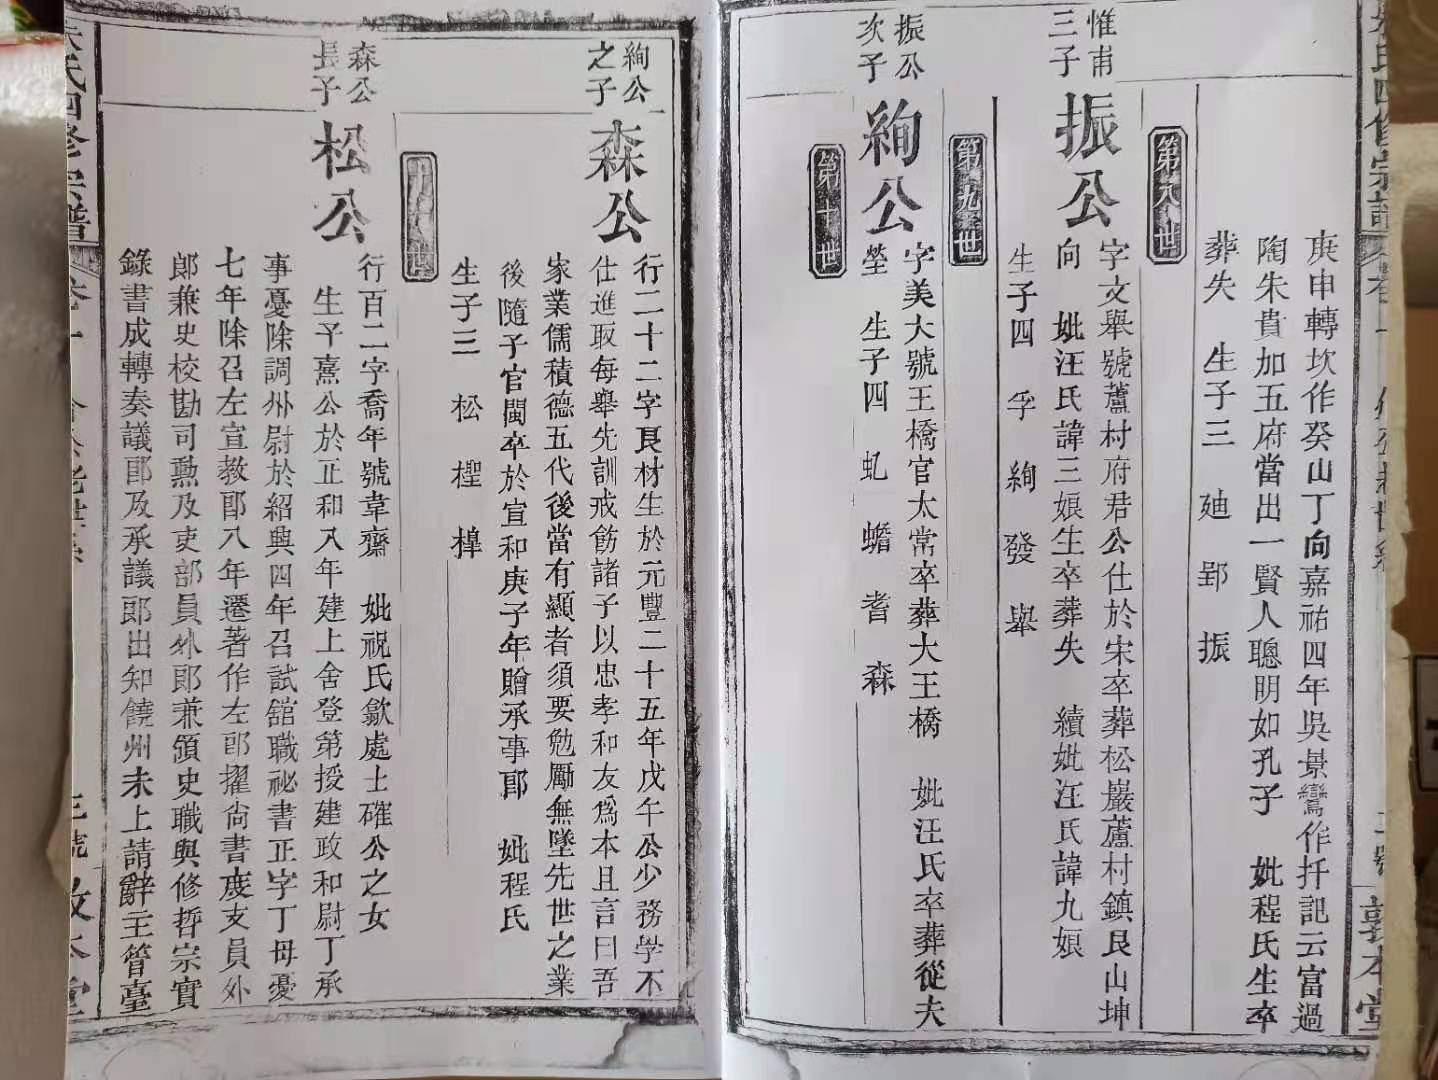 庚申轉坎作癸山丁向嘉祐四年吳景鸞作扦記云富過
陶朱貴加五府當出一賢人聰明如孔子 妣程氏生卒
葬失 生子三 廸 郢 振
第八世
惟甫三子
振公
字文舉號蘆村府君公仕於宋卒葬松巖蘆村鎮艮山坤
向 妣汪氏諱三娘生卒葬失 續妣汪氏諱九娘
生子四 孚 絢 發 舉
第九世
振公次子
絢公
字美大號王橋官太常卒葬大王橋 妣汪氏卒葬從夫
塋 生子四 虬 蟾 耆 森
第十世
絢公之子
森公
行二十二字良材生於元豐二十五年戊午公少務學不
仕進取每舉先訓戒飭諸子以忠孝和友為本且言曰吾
家業儒積德五代後當有顯者須要勉勵無墜先世之業
後隨子官閩卒於宣和庚子年贈承事郎 妣程氏
生子三 松 檉 槹
森公長子
松公
行百二字喬年號韋齋 妣祝氏歙處士確公之女
生子熹公於正和八年建上舍登第授建政和尉丁承
事憂除調州尉於紹興四年召試舘職祕書正字丁母憂
七年除召左宣教郎八年遷著作左郎擢尚書度支員外
郎兼史校勘司勲及吏部員外郎兼領史職與修哲宗實
錄書成轉奏議郎及承議郎出知饒州未上請辭主管臺
氏四修宗譜 卷一 三號 敦本堂